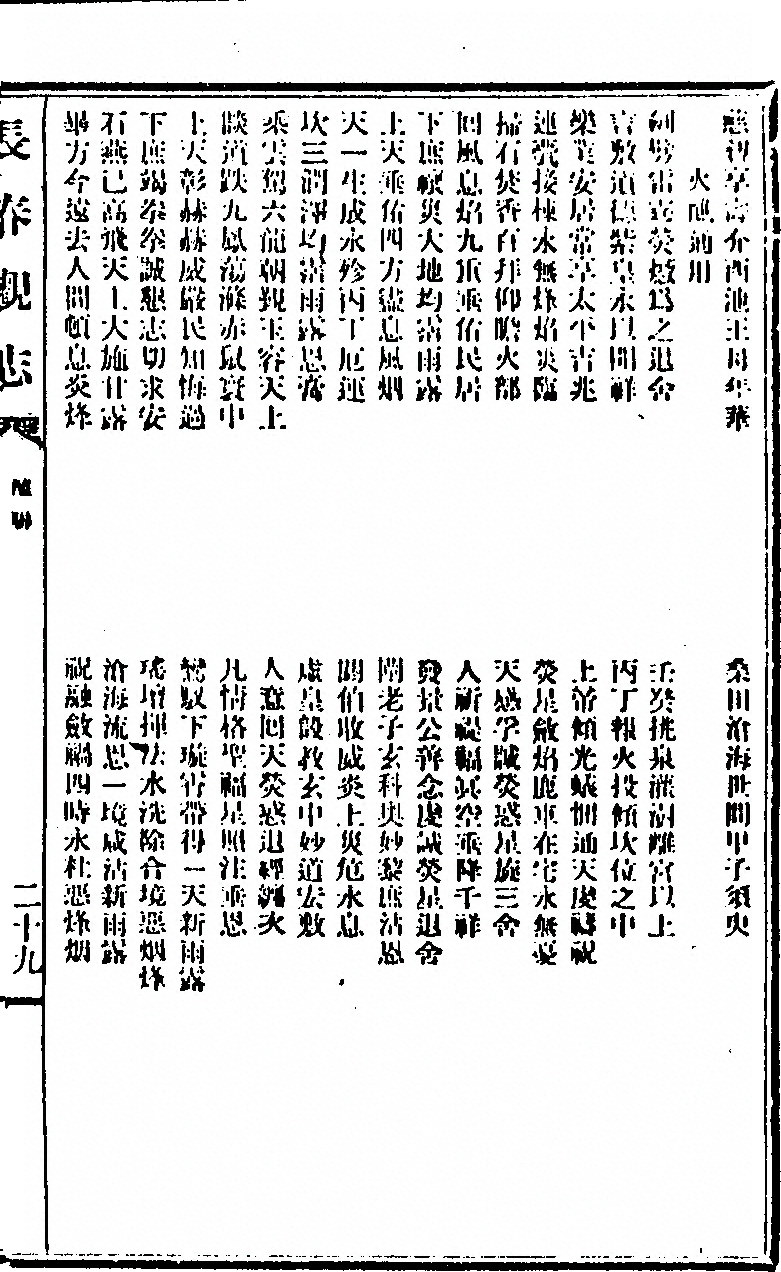 享壽介西池王母年華
桑田滄海世間甲子須臾
火醮通用
步雷壇熒爲之退舍
壬癸挑泉灌溉離宮以上
宮敷道德紫皇永見開祥
丙丁報火投傾坎位之中
樂業安居常享太平吉兆
上帝傾光蟻悃通天慶禱祝
連甍接棟永無烽焰災臨
熒星斂焰鹿車在宅永無憂
掃石焚香百拜仰瞻火部
天感孚誠熒惑星施三舍
回風息焰九重垂佑民居
人祈禔福眞空垂降千祥
下庶禳災大地均霑雨露
發量公善念虔誠熒星退舍
上天垂佑四方盡息風烟
闡老子玄科奥妙黎庶沾恩
天一生成永殄丙丁厄運
閼伯收威炎上災危永息
坎三潤澤均霑雨露恩膏
虛皇設教玄中妙道宏敷
乘雲駕六龍朝覲玉容天上
人意回天熒惑退躔次
談道跌九鳳蕩滌赤鼠寰中
凡情格聖福星照注垂恩
上天彰赫赫威嚴民知悔過
鸞馭下璇霄帶得一天新雨露
下庶竭拳拳誠懇志切求安
瑤壇揮法水洗除合境惡烟烽
石燕已高飛天上大施甘露
滄海流恩一境咸沾新雨露
畢方今遠去人間頓息炎烽
祝融斂四時永杜惡烽烟
長春觀志
醮聯
二十九